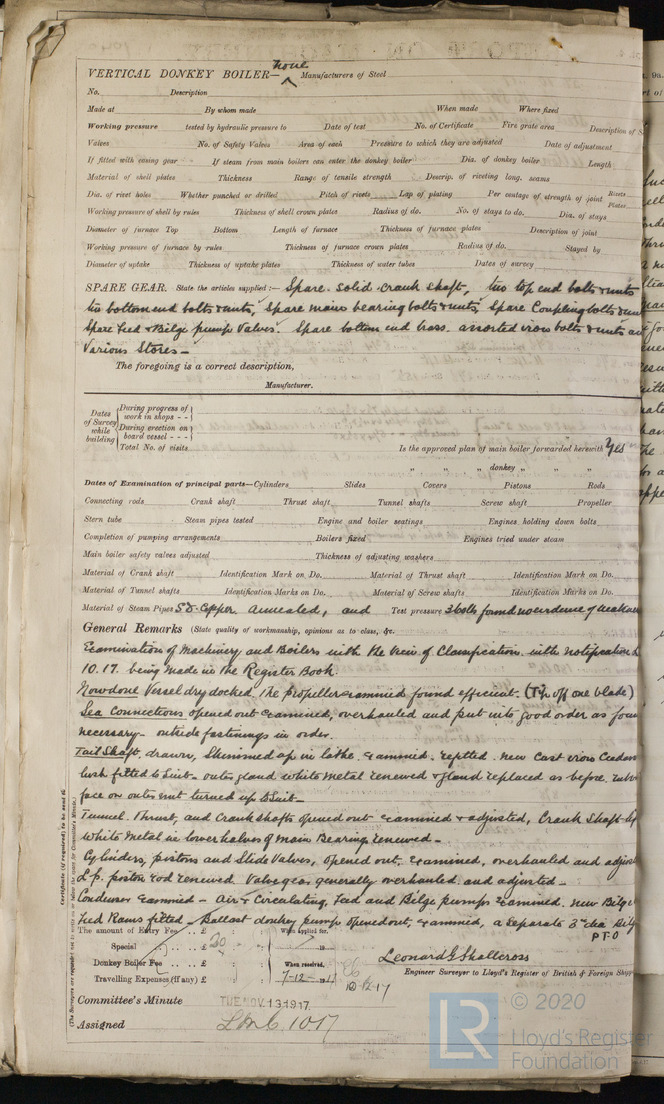 VERTICAL DONKEY BOILER— None Manufacturers of Steel
No. Description
Made at By whom made When made Where fixed
Working pressure tested by hydraulic pressure to Date of test No. of Certificate Fire grate area Description of S
Valves No. of Safety Valves Area of each Pressure to which they are adjusted Date of adjustment
If fitted with easing gear If steam from main boilers can enter the donkey boiler Dia. of donkey boiler Length
Material of shell plates Thickness Range of tensile strength Descrip. of riveting long. seams
Dia. of rivet holes Whether punched or drilled Pitch of rivets Lap of plating Per centage of strength of joint Rivets Plates
Working pressure of shell by rules Thickness of shell crown plates Radius of do. No. of stays to do. Dia. of stays
Diameter of furnace Top Bottom Length of furnace Thickness of furnace plates Description of joint
Working pressure of furnace by rules Thickness of furnace crown plates Radius of do. Stayed by
Diameter of uptake Thickness of uptake plates Thickness of water tubes Dates of survey
SPARE GEAR. State the articles supplied:— Spare solid crank shaft, two top end bolts & nuts
two bottom end bolts & nuts, Spare main bearing bolts & nuts, Spare Coupling bolts & nuts
Spare Feed & Bilge pump Valves. Spare bottom end brass. assorted iron bolts & nuts an
Various Stores—
The foregoing is a correct description,
Manufacturer.
Dates of Survey while building
During progress of work in shops - -
During erection on board vessel - - -
Total No. of visits
Is the approved plan of main boiler forwarded herewith Yes
" " " donkey " " "
Dates of Examination of principal parts—Cylinders Slides Covers Pistons Rods
Connecting rods Crank shaft Thrust shaft Tunnel shafts Screw shaft Propeller
Stern tube Steam pipes tested Engine and boiler seatings Engines holding down bolts
Completion of pumping arrangements Boilers fixed Engines tried under steam
Main boiler safety valves adjusted Thickness of adjusting washers
Material of Crank shaft Identification Mark on Do. Material of Thrust shaft Identification Mark on Do.
Material of Tunnel shafts Identification Marks on Do. Material of Screw shafts Identification Marks on Do.
Material of Steam Pipes S.D. Copper annealed, and Test pressure found no evidence of weakness
General Remarks (State quality of workmanship, opinions as to class, &c.
Examination of Machinery and Boilers with the view of Classification with notification
10.17. being made in the Register Book.
Now done Vessel dry docked, the propeller examined found efficient. (Tip off one blade)
Sea Connections opened out examined, overhauled and put into good order as foun
necessary— outside fastenings in order.
Tail Shaft, drawn, Skimmed up in lathe examined. refitted. new Cast iron
bush fitted to Suit— outer gland white metal renewed & gland replaced as before,
face on outer nut turned up to suit—
Tunnel, Thrust, and Crank shafts opened out examined & adjusted, Crank Shaft
White Metal in lower halves of main Bearings renewed—
Cylinders, pistons and Slide Valves, opened out, examined, overhauled and adjust
L.p. piston rod renewed. Valve gear generally overhauled and adjusted—
Condenser examined— Air & Circulating, Feed and Bilge pumps examined, new Bilge
Feed Rams fitted— Ballast donkey pump opened out, examined, a Separate 3" dia Bilg
P.T.O
Certificate (if required) to be sent to
The amount of Entry Fee . . £ : : When applied for,
Special . . . £ 20 : : 19
Donkey Boiler Fee . . £ : : When received,
Travelling Expenses (if any) £ : : 7-12-1917
Leonard G Shallcross
Engineer Surveyor to Lloyd's Register of British & Foreign Shipp
Committee's Minute TUE NOV. 13 1917
Assigned LMC 10.17
© 2020
LR
Lloyd's Register
Foundation